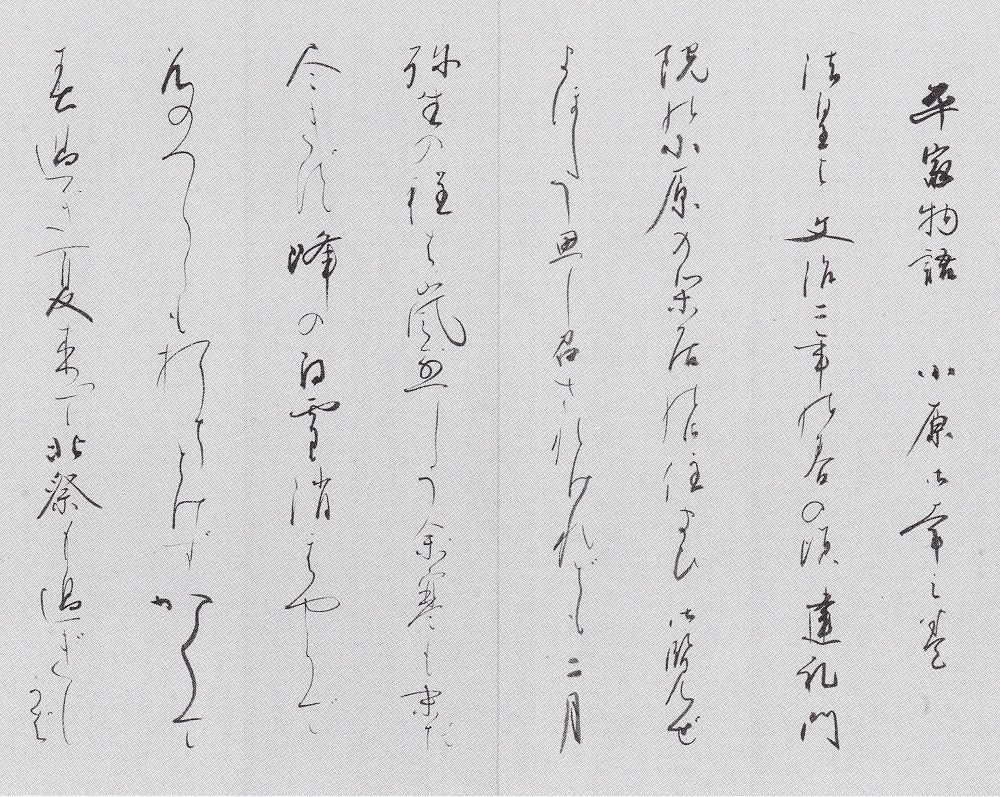 平家物語 小原御幸之巻
法皇は文治二年の春の頃建礼門
院の小原の閑居の住まひ御覧ぜ
まほしう思し召されけれども二月
弥生の程は嵐烈しう余寒も未だ
尽きず峰の白雪消えやらで
谷のつららも打ちとけずかくて
春過ぎ夏来て北祭も過ぎしかば